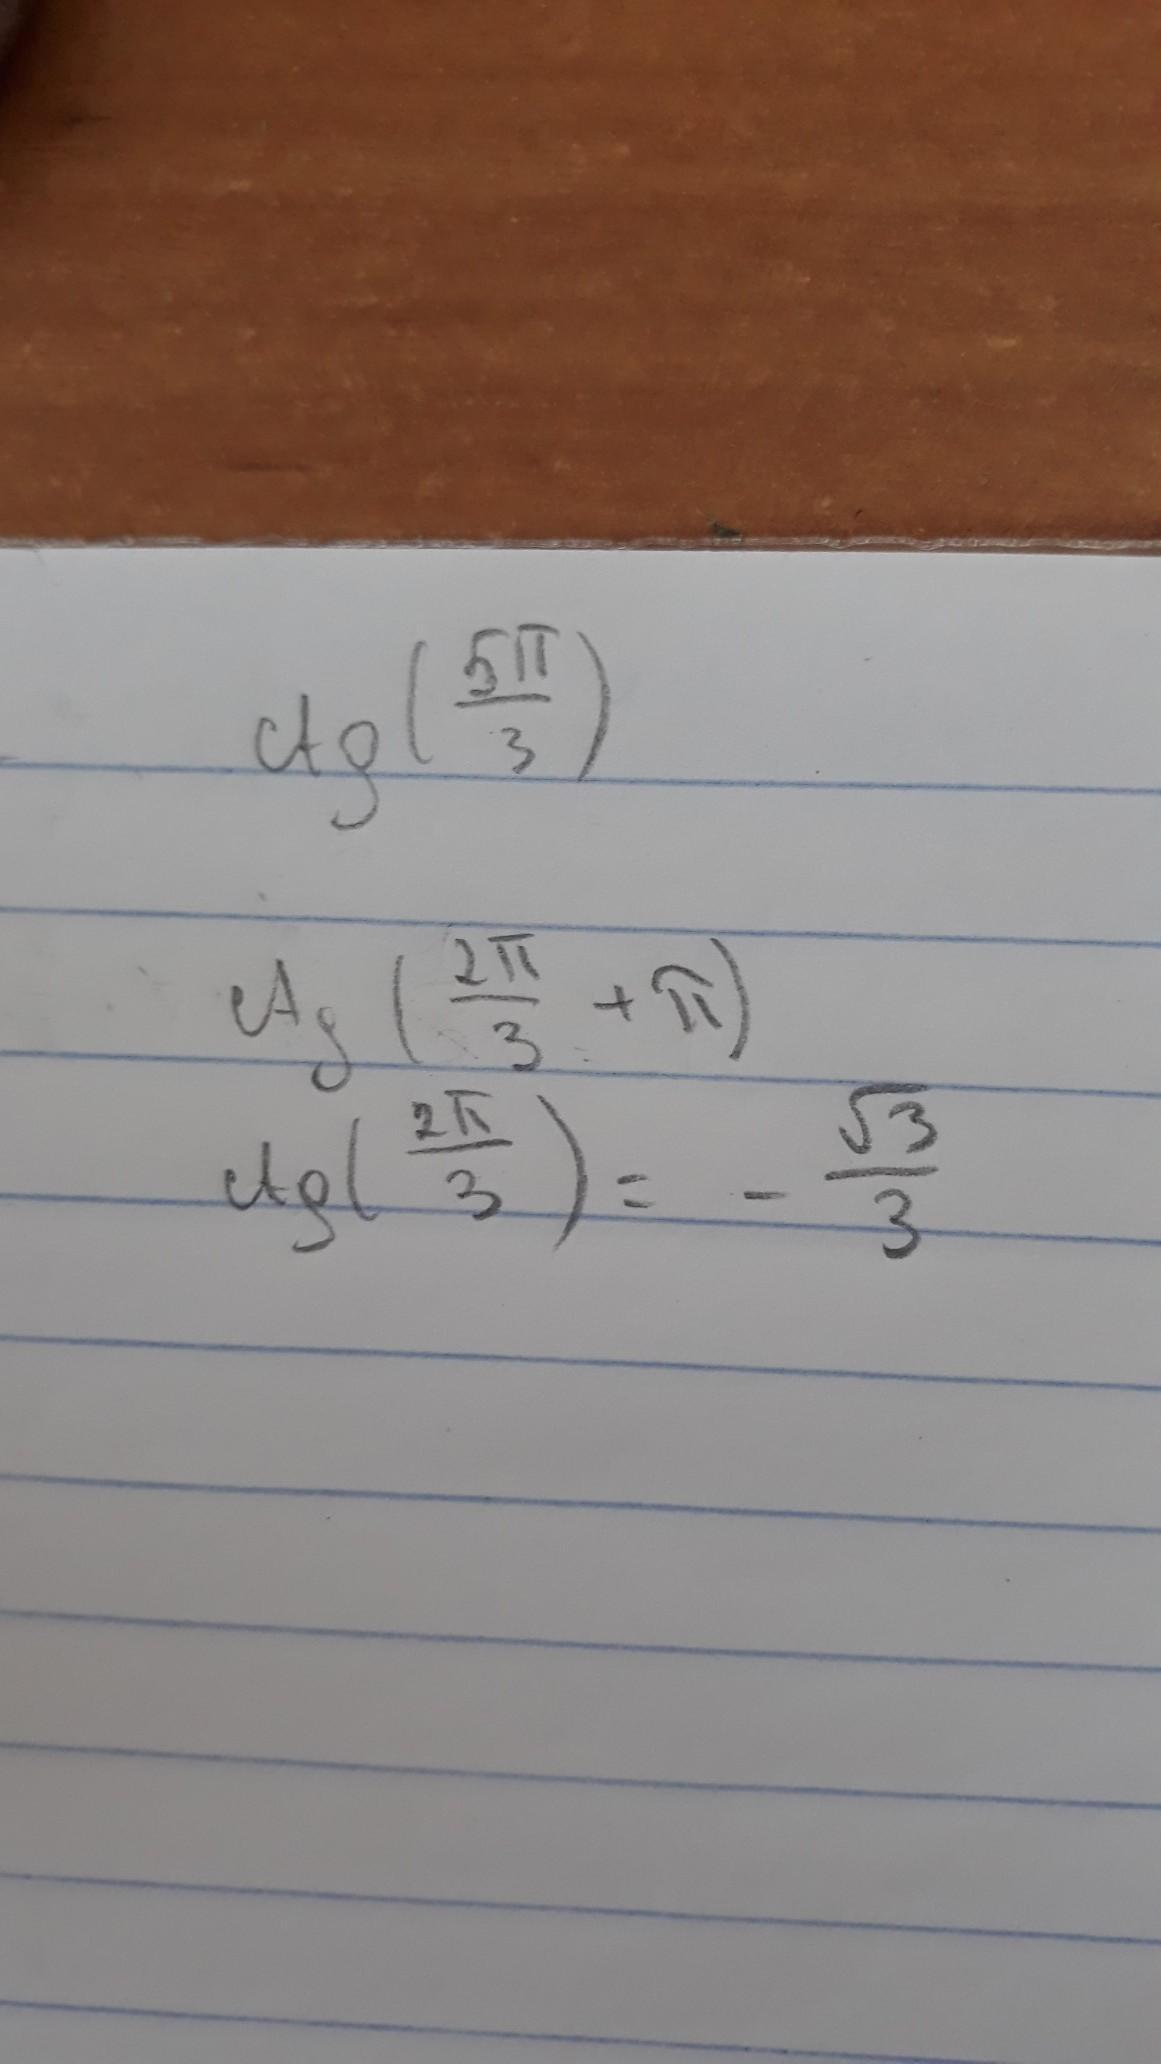 ctg(5π/3)
ctg(2π/3 + π)
ctg(2π/3) = - √3/3